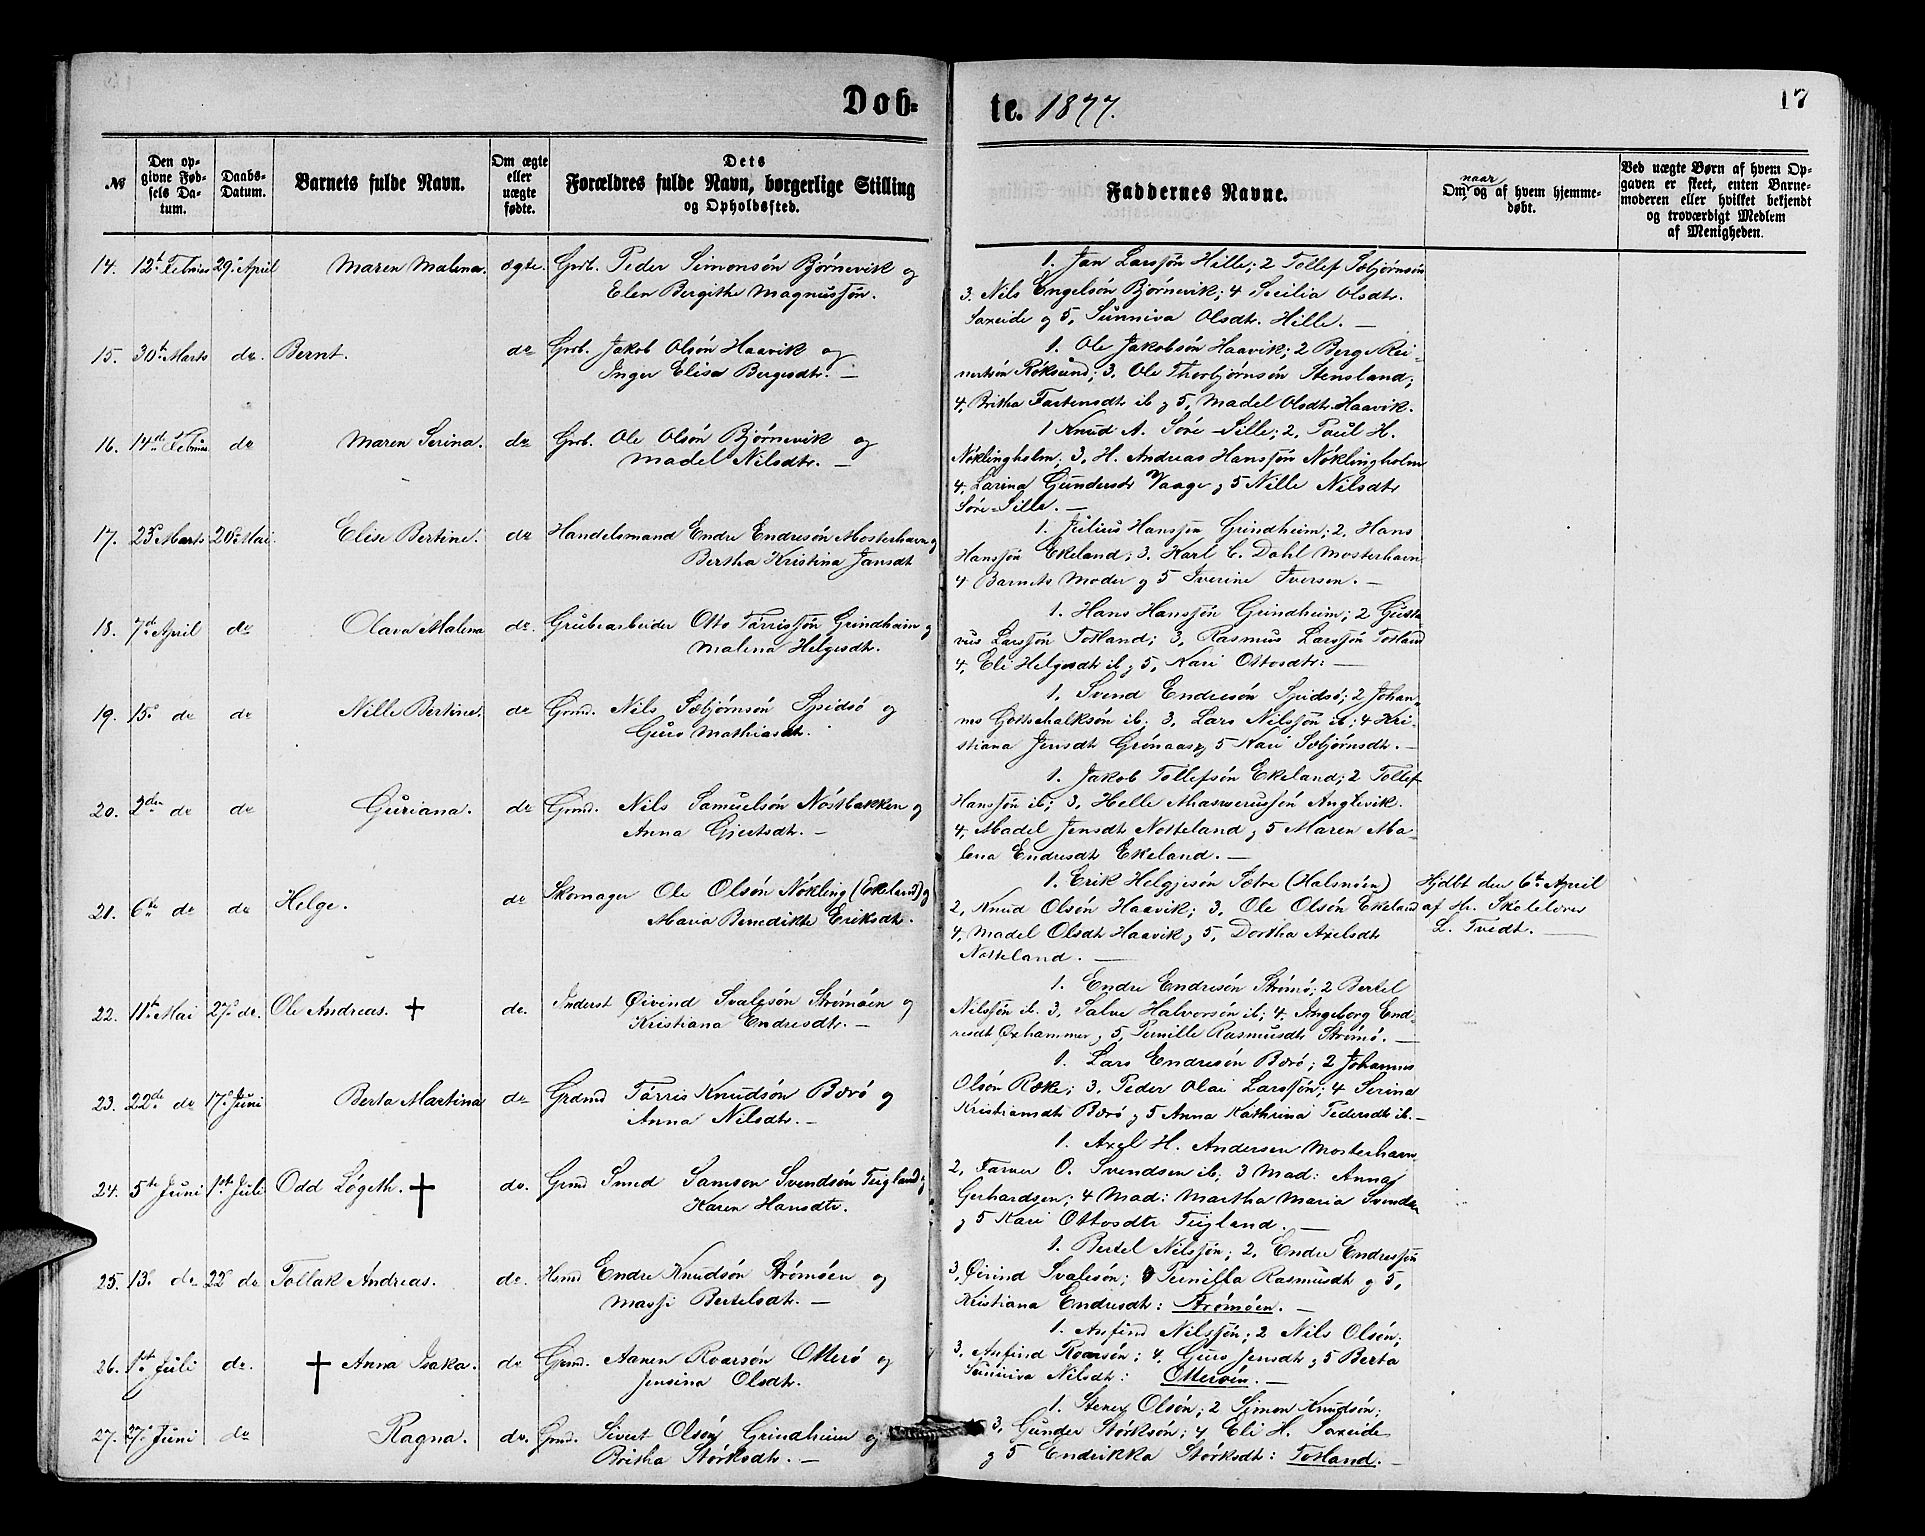 Døb-
te. 1877.
17
№
Den op-
givne Fød-
sels Da-
tum.
Daabs-
Datum.
Barnets fulde Navn.
Om ægte
eller
uægte
fødte.
Dets
Forældres fulde Navn, borgerlige Stilling
og Opholdssted.
Faddernes Navne.
naar
Om, og af hvem hjemme-
døbt.
Ved uægte Børn af hvem Op-
gaven er skeet, enten Barne-
moderen eller hvilket bekjendt
og troværdigt Medlem
af Menigheden.
14. 12te Februar 29de April Maren Malena. ægte. Grb. Peder Simonsön Björnevik og
Elen Bergithe Magnussön.
1. Jan Larssön Hille; 2 Tollef Sæbjörnsön
3. Nils Engelsön Björnevik; 4 Secilia Olsdtr.
Saxeide og 5, Sunniva Olsdtr. Hille. —
15. 30te Marts do. Bernt. do Grb. Jakob Olsön Haavik og
Inger Elisa Bergesdtr. —
1. Ole Jakobsön Haavik; 2 Berge Rei-
nertsön Röksund; 3, Ole Thorbjörnsön Stensland;
4, Britha Tostensdtr ib og 5, Madel Olsdtr. Haavik.
16. 14de Februar do Maren Serina. do Grb. Ole Olsön Björnevik og
Madel Nilsdtr. —
1 Knud A. Söre-Sille; 2, Paul H.
Nöklingholm; 3, H. Andreas Hanssön Nöklingholm
4, Larina Gundersdtr Vaage og 5 Nille Nilsdtr
Söre-Sille. —
17. 23de Marts 20de Mai. Elise Bertine. do Handelsmand Endre Endresön Mosterhavn og
Bertha Kristina Jansdt
1. Julius Hanssön Grindheim; 2, Hans
Hanssön Ekeland; 3, Karl C. Dahl Mosterhavn
4 Barnets Moder og 5 Iverine Iversen. —
18. 7de April do Olava Malena do. Grubearbeider Otto Törrissön Grindheim og
Malena Helgesdtr.
1. Hans Hanssön Grindheim; 2 Gusta-
vus Larssön Totland; 3, Rasmus Larssön Totland
4, Eli Helgesdtr ib og 5, Kari Ottosdtr: —
19. 15de do do Nille Bertine. do Grmd. Nils Sæbjörnsön Spidsö og
Guro Mathiasdtr.
1, Svend Endresön Spidsö; 2 Johan-
nes Gotschalksön ib; 3, Lars Nilssön ib; 4 Kri-
stiana Jensdtr Grönaas og 5 Kari Sæbjörnsdtr. —
20. 2den do do Guriana. do Grmd. Nils Samuelsön Nöstbakken og
Anna Gjertsdtr. —
1. Jakob Tollefsön Ekeland; 2 Tollef
Hanssön ib; 3, Helle Ahasverussön Angltvik.
4, Madel Jensdtr Notteland og 5 Maren Ma-
lena Endresdtr Ekeland. —
21. 6te do do Helge. do Skomager Ole Olsön Nökling (Ekeland) og
Maria Benedikte Eriksdtr.
1. Erik Helgjesön Tötre (Halsnöen)
2, Knud Olsön Haavik; 3, Ole Olsön Ekeland
4, Madel Olsdtr Haavik og 5, Dortha Axelsdtr
Notteland. —
Hjdbt den 6te April
af Hr. Skolelærer
L. Tvedt. —
22. 11te Mai 27de do. Ole Andreas. † do. Inderst Öivind Svalesön Strömöen og
Kristiana Endresdtr. —
1. Endre Endresön Strömö; 2 Bertel
Nilssön ib. 3, Salve Halvorsön ib; 4, Ingeborg End-
resdt Oxhammer og 5, Pernille Rasmusdtr Strömö. —
23. 22de do 17de Juni Berta Martina do Grdmd Törris Knudsön Börö og
Anna Nilsdtr. —
1. Lars Endresön Börö; 2 Johannes
Olsön Røke; 3, Peder Olai Larssön; 4 Serina
Kristiansdtr Börö og 5 Anna Kathrina Pedersdtr ib. —
24. 5te Juni 1ste Juli Odd Lögeth. † do. Grmd Smed Samson Svendsön Teigland og
Karen Hansdtr.
1. Axel H. Andersen Mosterhavn
2, Farver O. Svendsen ib; 3 Mad: Anna
Gerhardsen; 4 Mad: Martha Maria Svendsen
og 5 Kari Ottosdtr Teigland. —
25. 13de do 22de do Tollak Andreas. do. Hsmd Endre Knudsön Strömöen og
Massi Bertelsdtr. —
1. Bertel Nilssön; 2, Endre Endressön
3, Öivind Svalesön; 4 Pernilla Rasmusdt og 5,
Kristiana Endresdt: Strömöen. —
26. 1ste Juli do. † Anna Isaka. do Grmd. Aanen Roarsön Otterö og
Jensina Olsdtr.
1. Anfind Nilssön; 2 Nils Olsön;
3, Anfind Roarsön; 4, Guro Jensdt og 5 Berta
Sunniva Nilsdt: Otteröen. —
27. 27de Juni do Ragna. do. Grmd. Sivert Olsön Grindheim og
Britha Störksdtr. —
1. Steney Olsön; 2 Simon Knudsön;
3, Gunder Störksön; 4 Eli H. Saxeide
og 5 Endrikka Störksdt: Totland. —